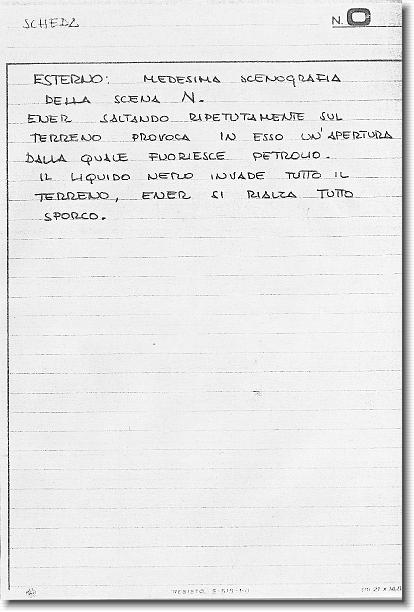 SCHEDA
N. O
ESTERNO: MEDESIMA SCENOGRAFIA
DELLA SCENA N.
ENER SALTANDO RIPETUTAMENTE SUL
TERRENO PROVOCA IN ESSO UN'APERTURA
DALLA QUALE FUORIESCE PETROLIO.
IL LIQUIDO NERO INVADE TUTTO IL
TERRENO, ENER SI RIALZA TUTTO
SPORCO.